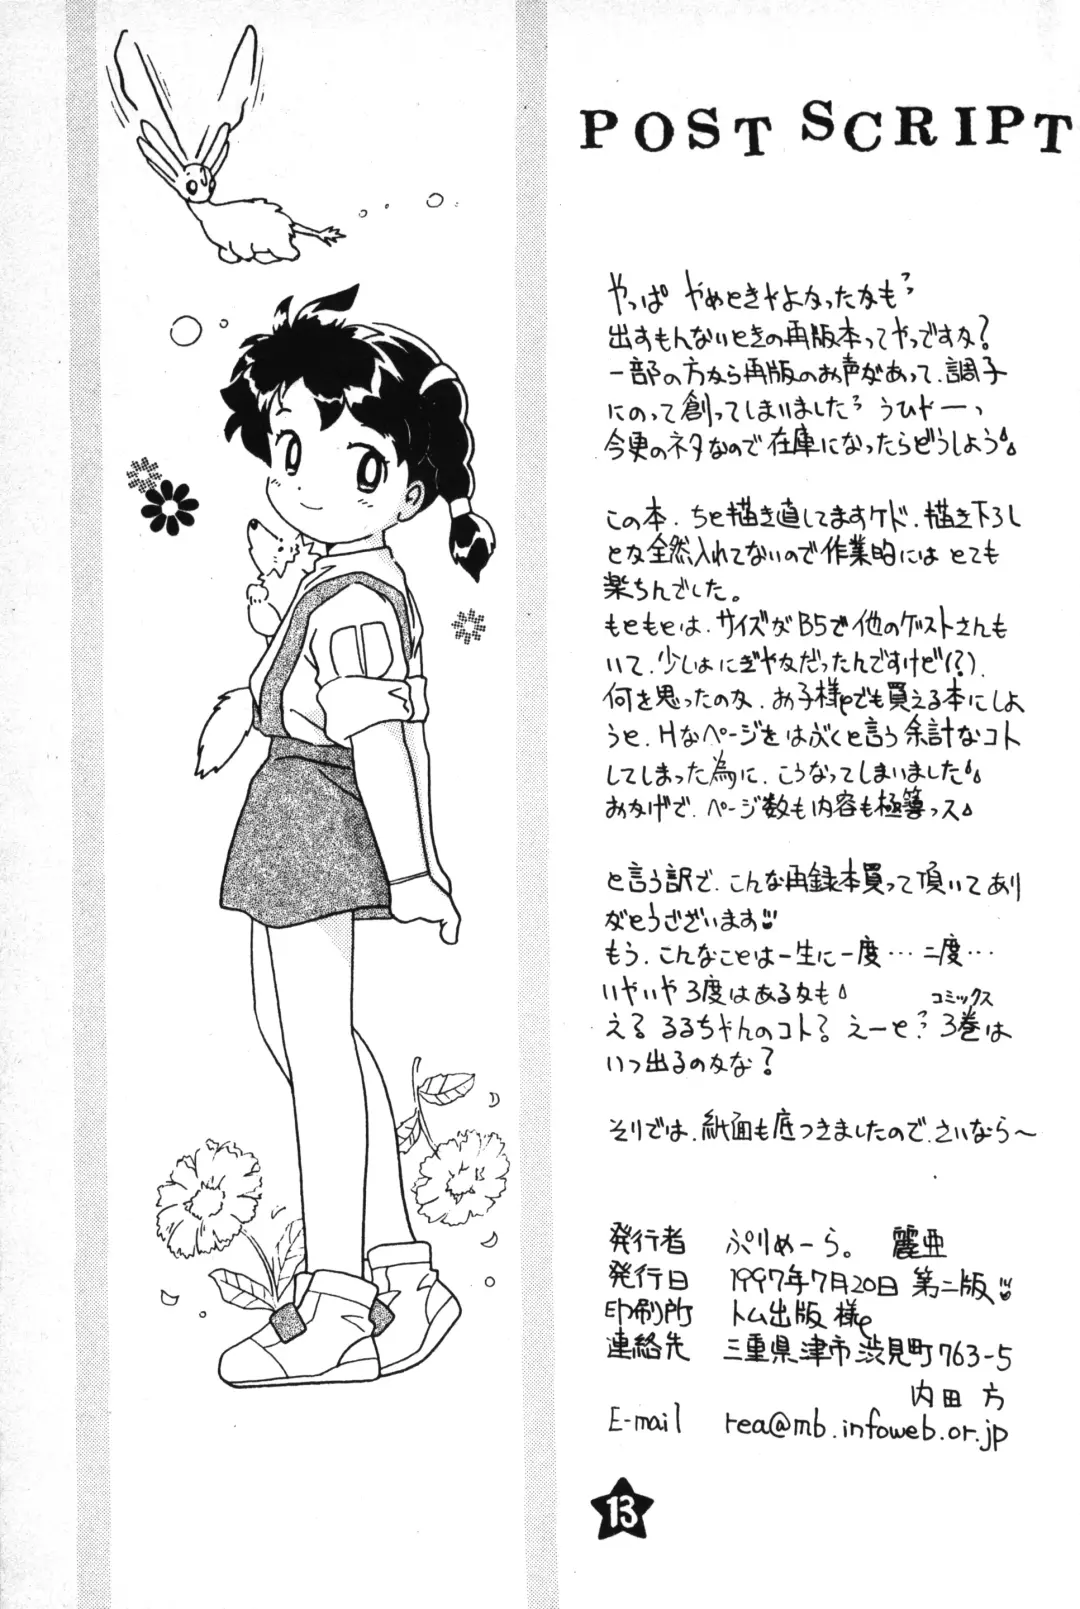 POST SCRIPT
やっぱ やめときゃよかったかも?
出すもんないときの再版本ってやつですか?
一部の方から再版のお声があって、調子
にのって創ってしまいました? うひゃーっ
今更のネタなので在庫になったらどうしよう
この本、ちと描き直してますケド、描き下ろし
とか全然入れてないので作業的にはとても
楽ちんでした。
もともとは、サイズがB5で他のゲストさんも
いて、少しはにぎやかだったんですけど(?)
何を思ったのか、お子様でも買える本にしよ
うと、Hなページをはぶくと言う余計なコト
してしまった為に、こうなってしまいました
おかげで、ページ数も内容も極薄っス
と言う訳で、こんな再録本買って頂いてあり
がとうございます
もう、こんなことは一生に一度…二度…
いやいや3度はあるかも
える るるちゃんのコト? えーと? 3巻は
コミックス
いつ出るのかな?
そりでは、紙面も底つきましたので、さいなら〜
発行者 ぷりめーら。 麗亜
発行日 1997年7月20日 第二版
印刷所 トム出版 様
連絡先 三重県津市渋見町763-5
内田 方
E-mail rea@mb.infoweb.or.jp
13